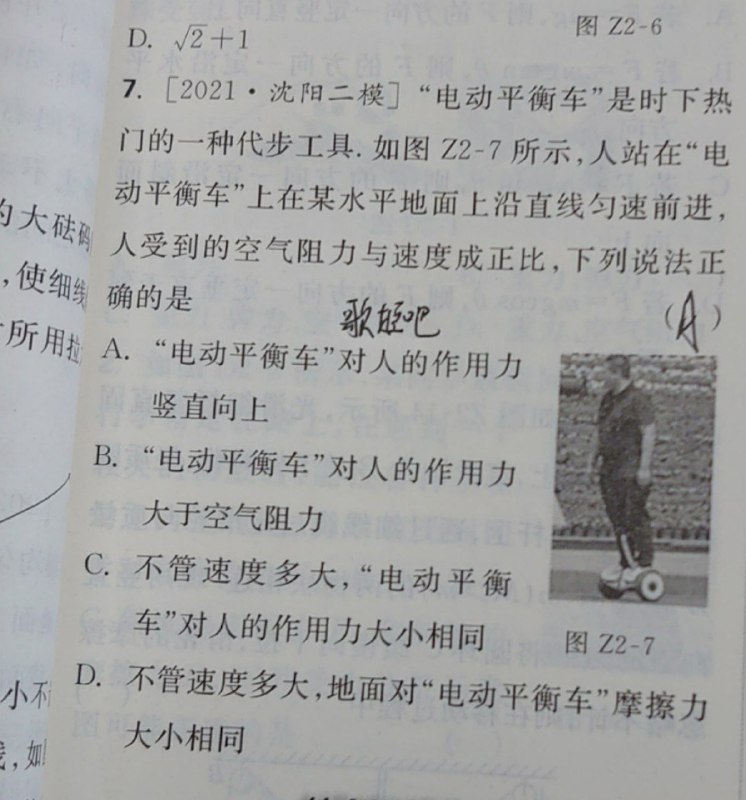 D. √2+1
图 Z2-6
7. [2021·沈阳二模] “电动平衡车”是时下热
门的一种代步工具. 如图 Z2-7 所示,人站在“电
动平衡车”上在某水平地面上沿直线匀速前进,
人受到的空气阻力与速度成正比,下列说法正
确的是
(A)
A. “电动平衡车”对人的作用力
竖直向上
B. “电动平衡车”对人的作用力
大于空气阻力
C. 不管速度多大,“电动平衡
车”对人的作用力大小相同
图 Z2-7
D. 不管速度多大,地面对“电动平衡车”摩擦力
大小相同
的大砝码
,使细线
所用拉
小不
,如